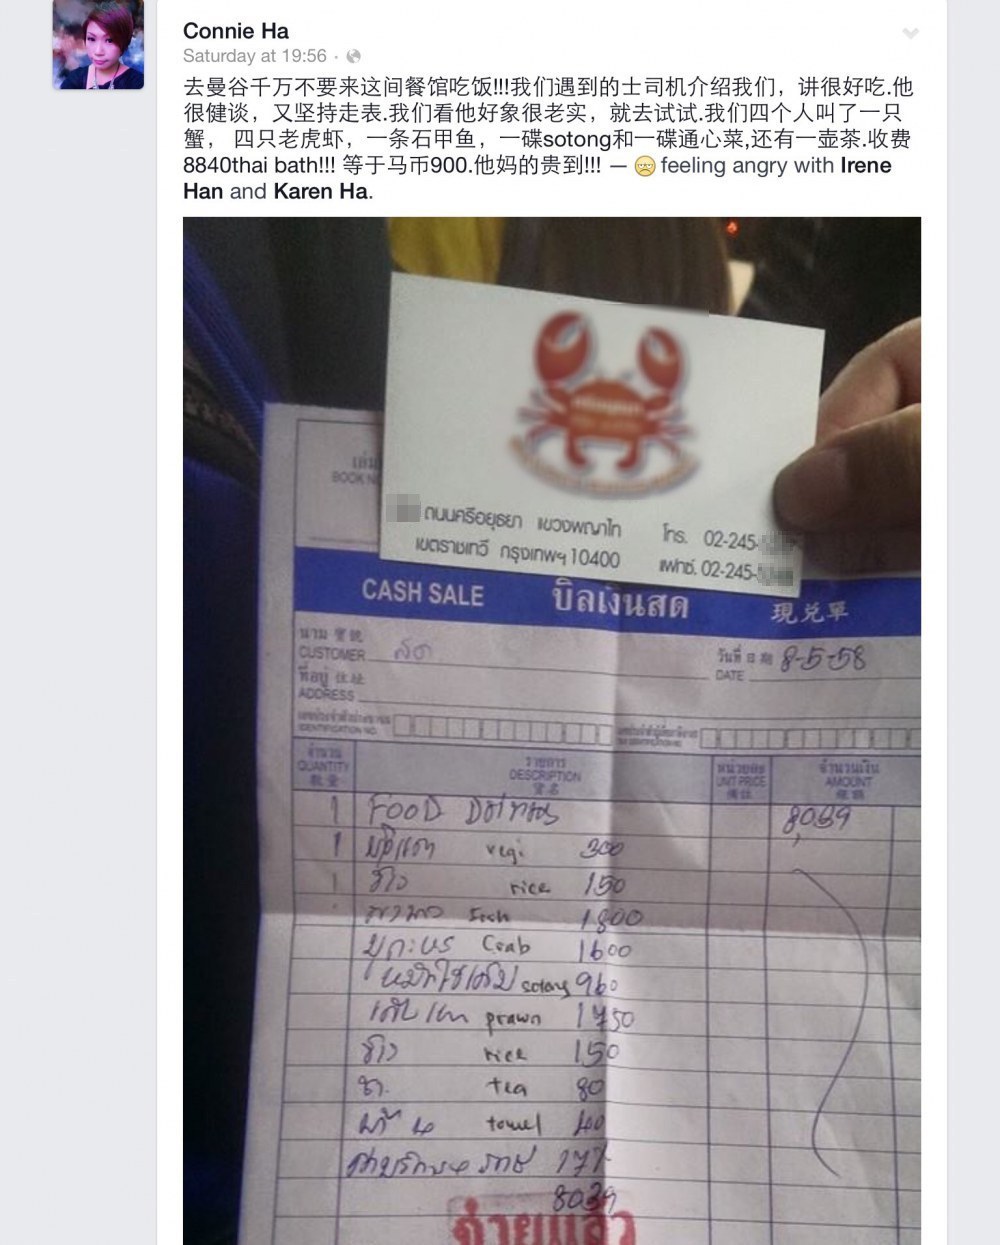 Connie Ha
Saturday at 19:56 ·
去曼谷千万不要来这间餐馆吃饭!!!我们遇到的士司机介绍我们，讲很好吃.他
很健谈，又坚持走表.我们看他好象很老实，就去试试.我们四个人叫了一只
蟹， 四只老虎虾，一条石甲鱼，一碟sotong和一碟通心菜,还有一壶茶.收费
8840thai bath!!! 等于马币900.他妈的贵到!!! — feeling angry with Irene
Han and Karen Ha.
ถนนศรีอยุธยา แขวงพญาไท โทร. 02-245-
เขตราชเทวี กรุงเทพฯ 10400 แฟกซ์. 02-245-
เล่ม
BOOK N
CASH SALE บิลเงินสด 現兑單
นาม 寶號
CUSTOMER สด วันที่ 日期 8-5-58
DATE
ที่อยู่ 住址
ADDRESS
IDENTIFICATION NO.
จำนวน รายการ หน่วยละ จำนวนเงิน
QUANTITY DESCRIPTION UNIT PRICE AMOUNT
數量 貨名
1 FOOD 8,039
1 vegi 300
1 rice 150
Fish 1800
Crab 1600
sotong 960
prawn 1750
rice 150
ชา tea 80
ผ้า 4 towel 40
177
8039
จ่ายแล้ว